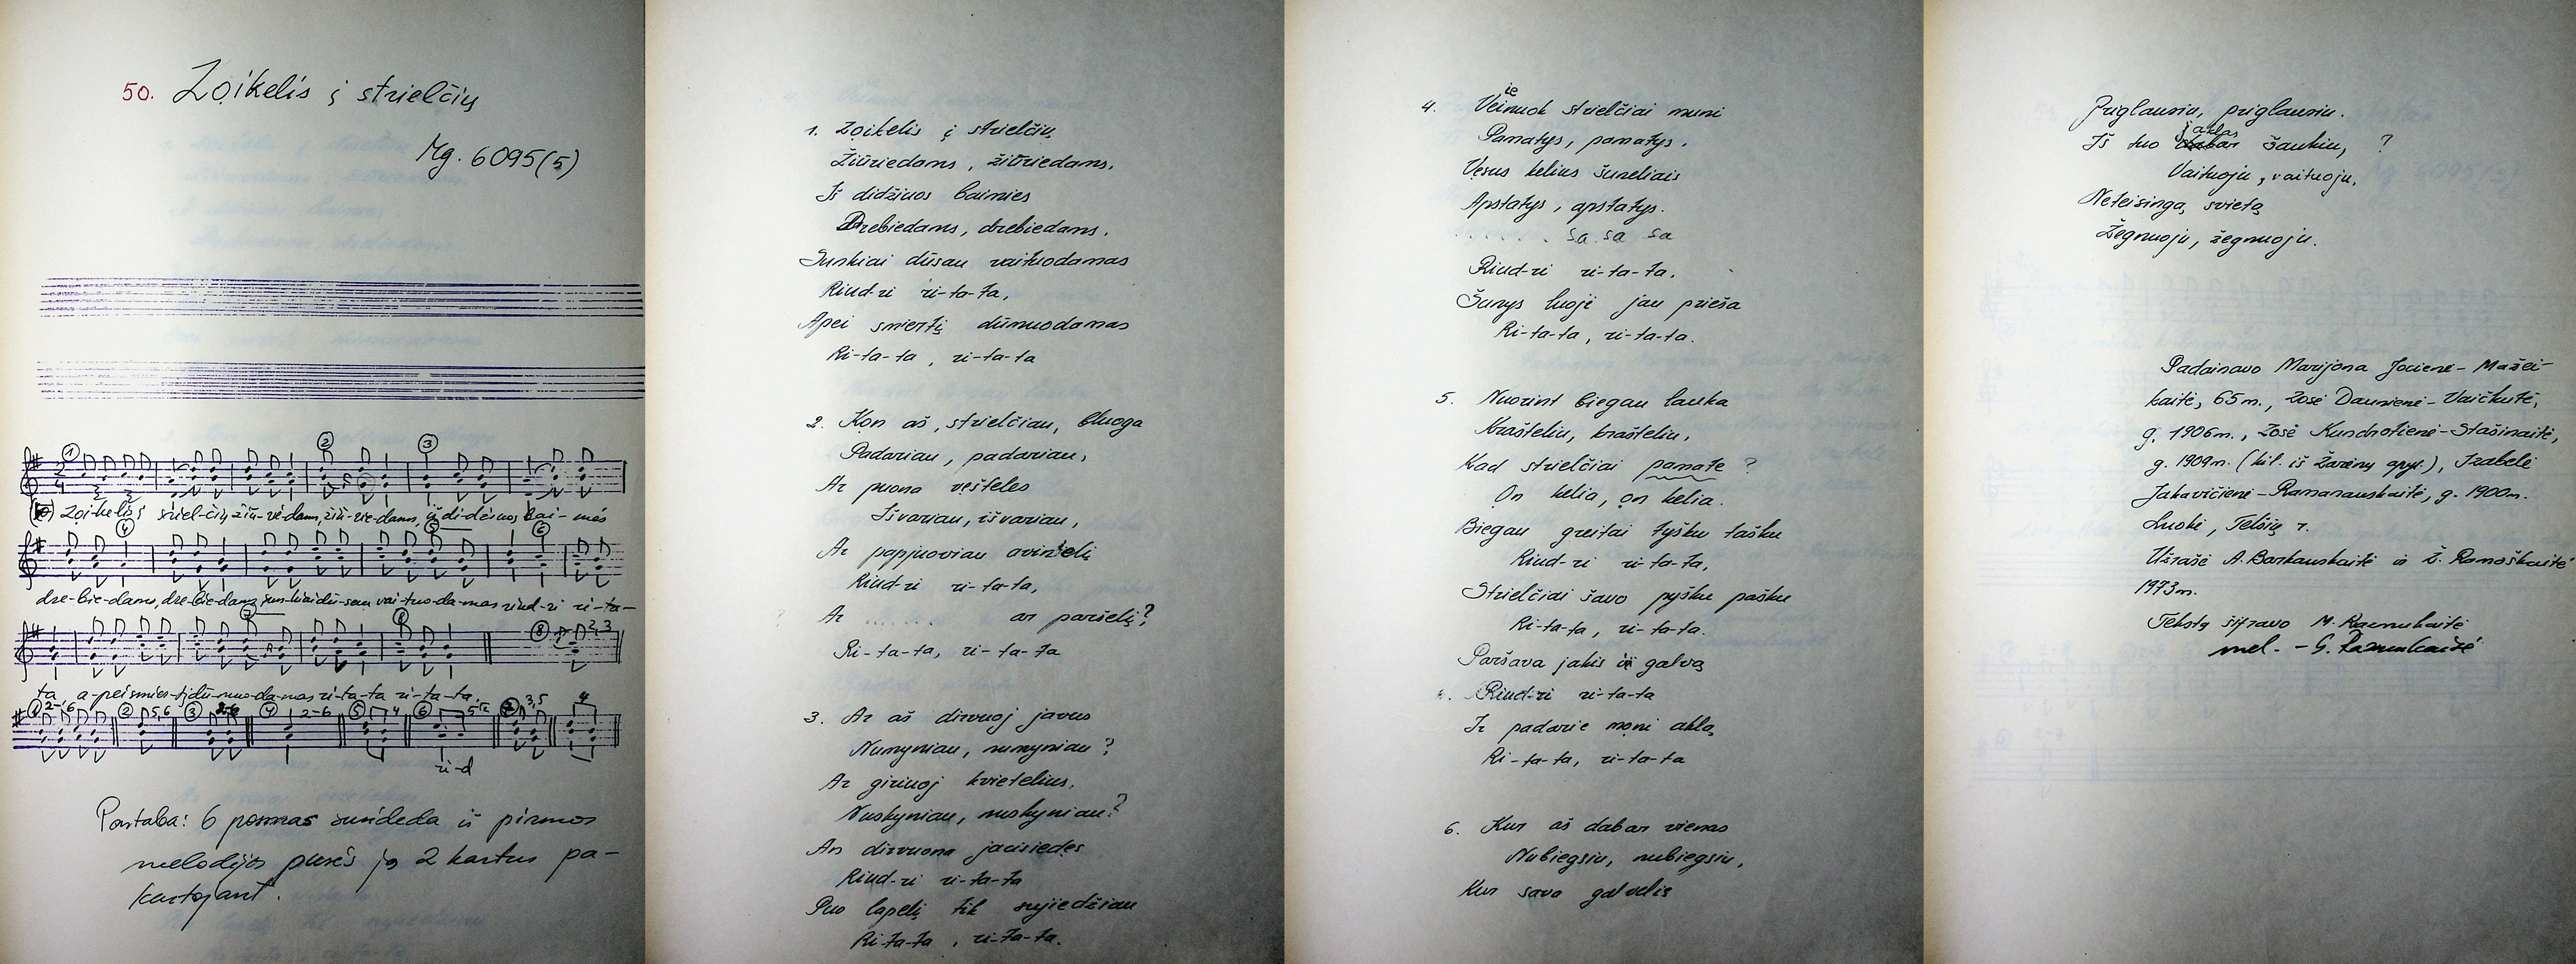 50. Zọikelis į strielčių
Mg. 6095(5)
① ② ③
Zoikelis į striel-čių žiū-rie-dams, žiū-rie-dams, iš di-džiuos bai-mės
④ ⑤ ⑥
dre-bie-dams, dre-bie-dams sun-kiai dū-sau vai-tuo-da-mas riud-ri ri-ta-
⑦ ⑧ ⑧ 2,3
ta a-pei smier-tį dū-muo-da-mas ri-ta-ta ri-ta-ta.
① 2-6 ② 5,6 ③ 2-6 ④ 2-6 ⑤ 4 ⑥ 5 ⑦ 3,5 4
ri-d
Pastaba: 6 posmas susideda iš pirmos
melodijos pusės ją 2 kartus pa-
kartojant.
1. Zoikelis į strielčių
Žiūriedams, žiūriedams,
Iš didžiuos baimies
Drebiedams, drebiedams.
Sunkiai dūsau vaituodamas
Riud-ri ri-ta-ta,
Apei smiertį dūmuodamas
Ri-ta-ta, ri-ta-ta
2. Kon aš, strielčiau, bluoga
Padariau, padariau,
Ar puona vęšteles
Išvariau, išvariau,
Ar papjuoviau avinelį
Riud-ri ri-ta-ta,
Ar ....... ar paršelį?
Ri-ta-ta, ri-ta-ta
3. Ar aš dirvuoj javus
Numyniau, numyniau?
Ar giriuoj kvietelius,
Nuskyniau, nuskyniau?
An dirvuona jaunsiedęs
Riud-ri ri-ta-ta
Puo lapelį tik sujiedžiau
Ri-ta-ta, ri-ta-ta.
4. Veinuok strielčiai muni
ie
Pamatys, pamatys.
Vẹsus kelius šuneliais
Apstatys, apstatys.
. . . . . . sa sa sa
Riud-ri ri-ta-ta.
Šunys luoje jau prieša
Ri-ta-ta, ri-ta-ta.
5. Nuorint biegau lauka
Krašteliu, krašteliu,
Kad strielčiai pamatę ?
On kelia, on kelia.
Biegau greitai tyšku tašku
Riud-ri ri-ta-ta,
Strielčiai šavo pyšku pašku
Ri-ta-ta, ri-ta-ta.
Paršava jakis į galvą
Riud-ri ri-ta-ta
Ir padarie mọni aklą
Ri-ta-ta, ri-ta-ta
6. Kur aš dabar vienas
Nubiegsiu, nubiegsiu,
Kur sava galvelię
Priglausiu, priglausiu.
aklas
Iš tuo dabar šaukiu, ?
Vaituoju, vaituoju.
Neteisingą svietą
Žegnuoju, žegnuoju.
Padainavo Marijona Jocienė-Mažei-
kaitė, 65m., Zosė Daunienė-Vaičkutė,
g. 1906m., Zosė Kundrotienė-Stašinaitė,
g. 1909m. (kil. iš Žarėnų apyl.), Izabelė
Jakavičienė-Ramanauskaitė, g. 1900m.
Luokė, Telšių r.
Užrašė A. Barkauskaitė ir Ž. Ramoškaitė
1973m.
Tekstą šifravo M. Razmukaitė
mel. - G. Razmukaitė